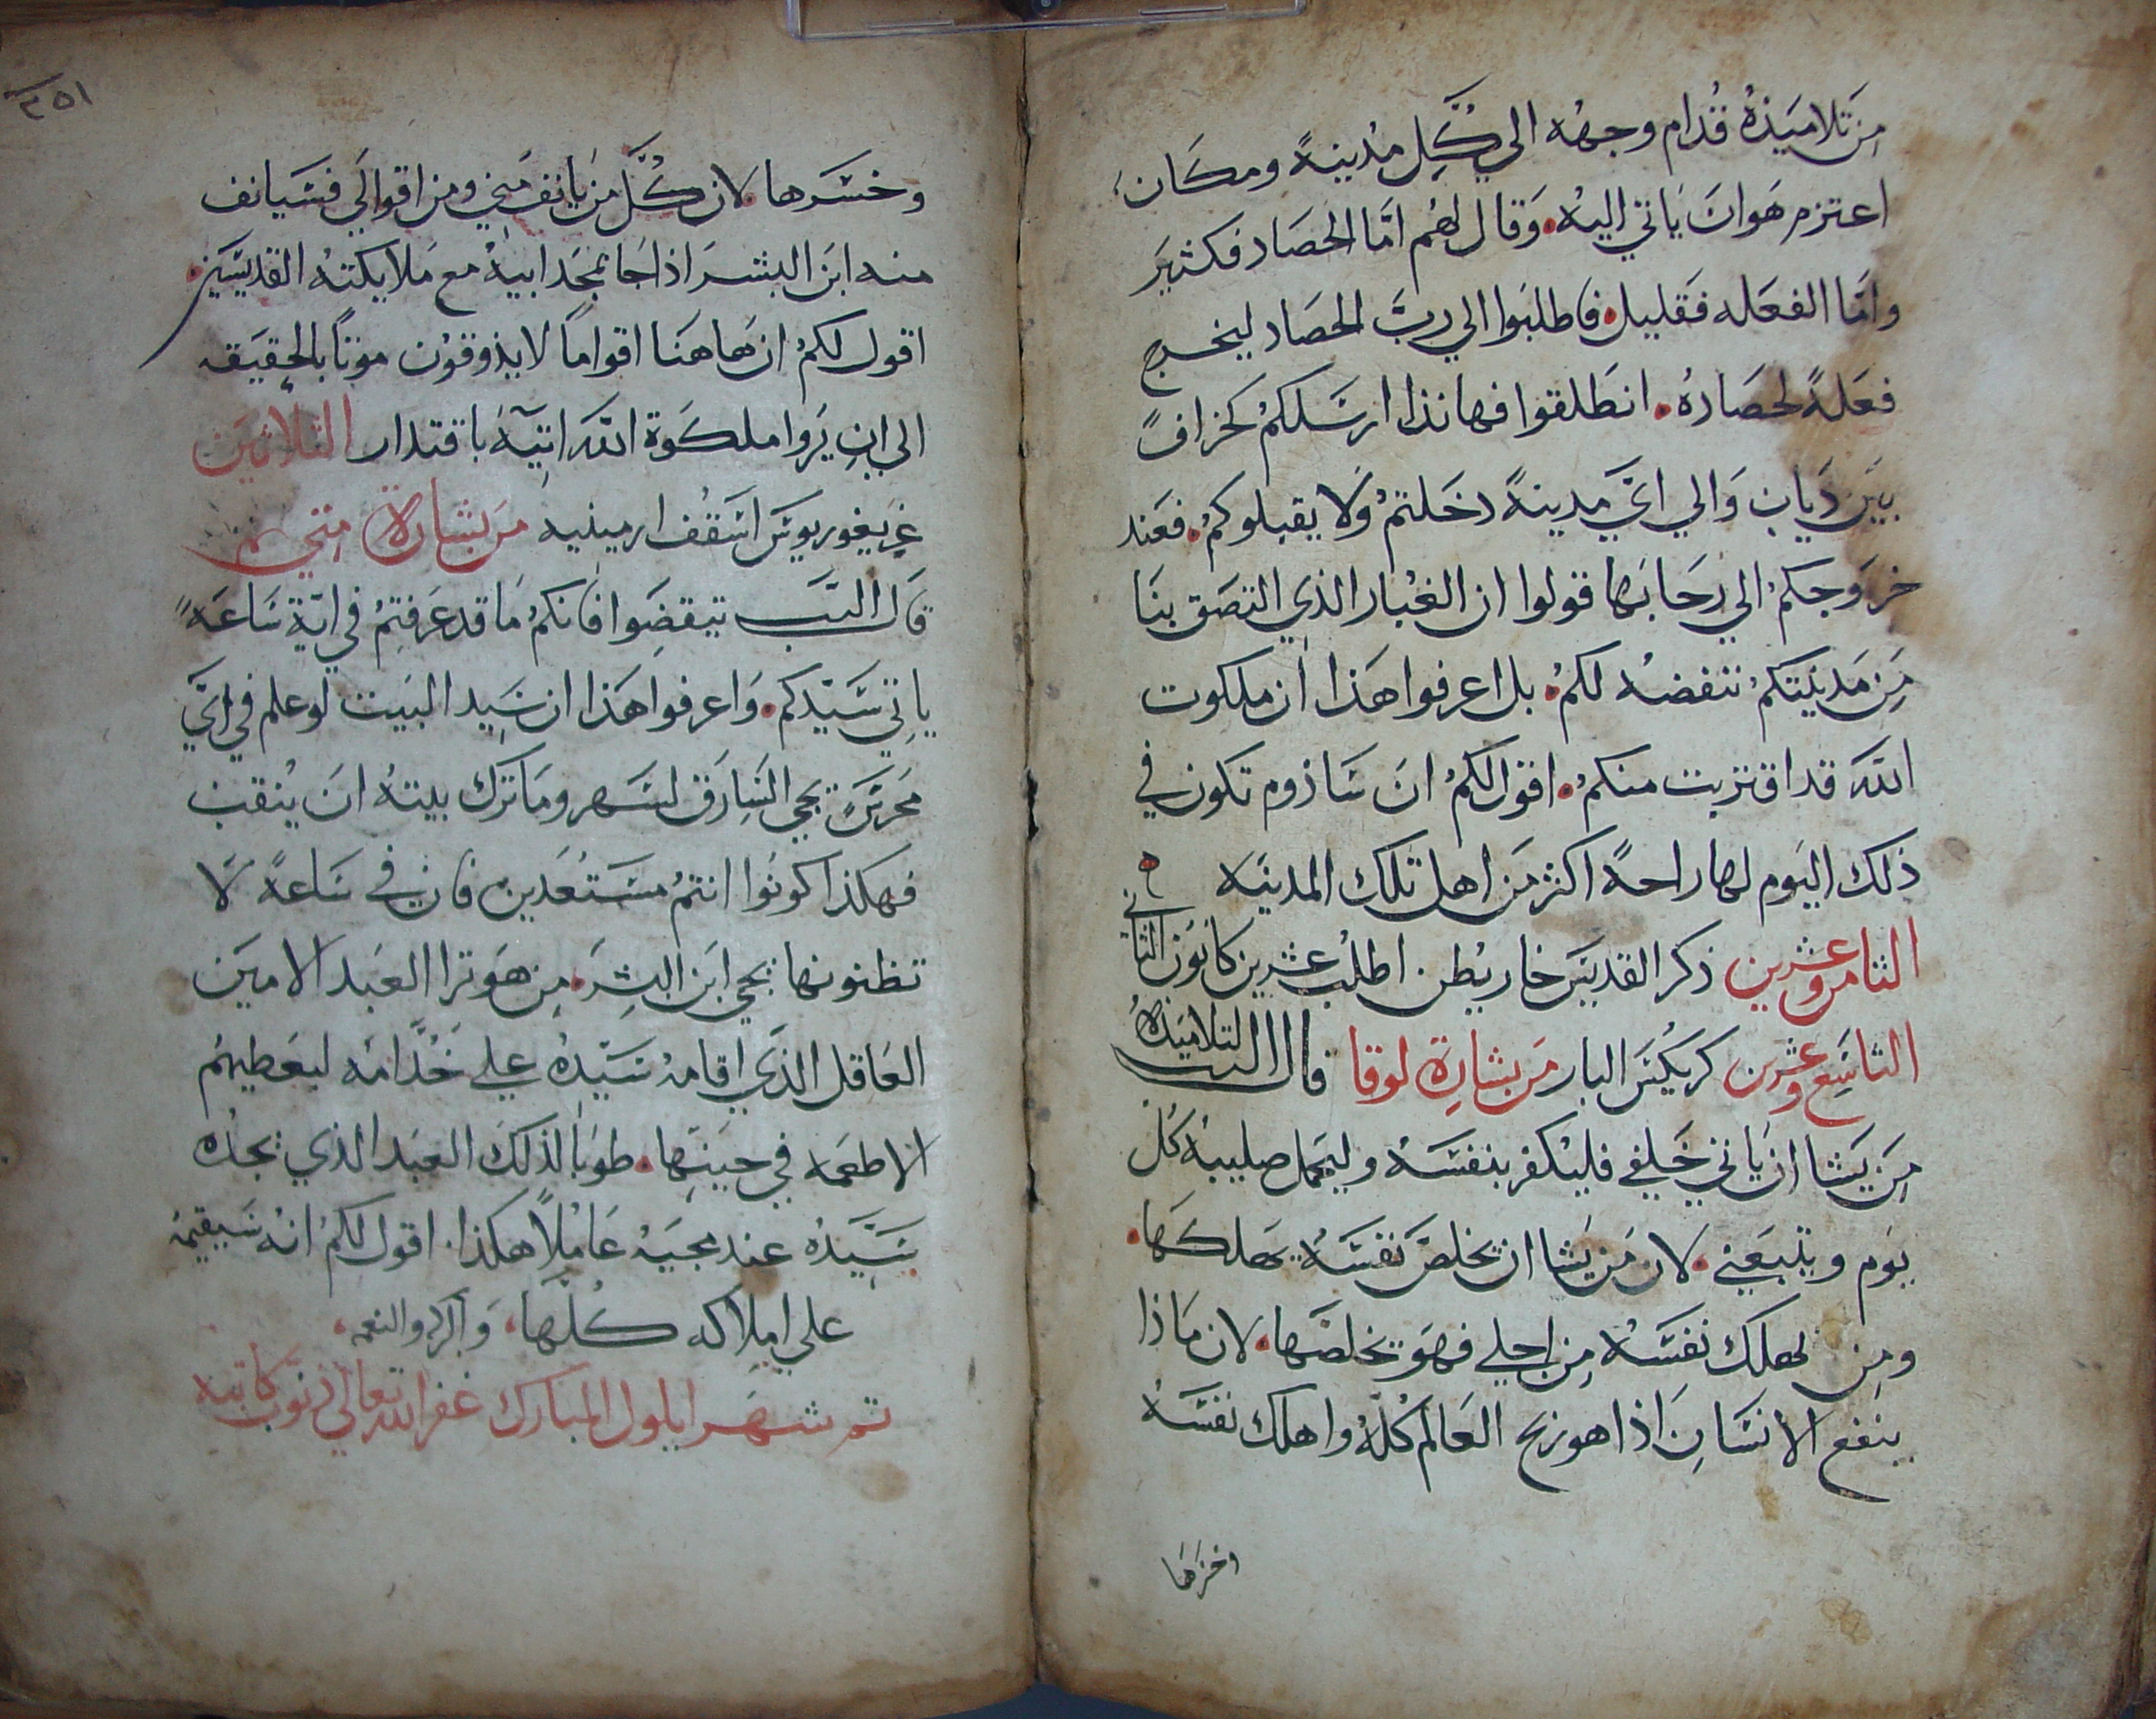 من تلاميذه قدام وجهه الي كل مدينة ومكان
اعتزم هو ان ياتي اليه. وقال لهم اما الحصاد فكثير
واما الفعله فقليل. فاطلبوا الي رب الحصاد ليخرج
فعلة لحصاده. انطلقوا فهانذا ارسلكم كخراف
بين دياب والي اي مدينة دخلتم ولا يقبلوكم. فعند
خروجكم الي رحابها قولوا ان الغبار الذي التصق بنا
من مدينتكم ننفضه لكم. بل اعرفوا هذا ان ملكوت
الله قد اقتربت منكم. اقول لكم ان سادوم تكون في
ذلك اليوم لها راحة اكثر من اهل تلك المدينه
الثامن وعشرين ذكر القديس خاريطن اطلب عشرين كانون الثاني
التاسع وعشرين كريكس البار من بشارة لوقا قال الرب لتلاميذه
من يشا ان ياتي خلفي فليكفر بنفسه وليحمل صليبه كل
يوم ويتبعني. لان من يشا ان يخلص نفسه يهلكها.
ومن يهلك نفسه من اجلي فهو يخلصها. لان ماذا
ينفع الانسان اذا هو ربح العالم كله واهلك نفسه
وخسرها
٢٥١
وخسرها لان كل من يانف مني ومن اقوالي فسيانف
منه ابن البشر اذا جا بمجد ابيه مع ملايكته القديسين.
اقول لكم ان هاهنا اقواما لا يذوقون موتا بالحقيقه
الي ان يروا ملكوة الله اتية باقتدار الثلاثين
غريغوريوس اسقف ارمينيه من بشارة متي
قال الرب تيقضوا فانكم ما قد عرفتم في اية ساعة
ياتي سيدكم. واعرفوا هذا ان سيد البيت لو علم في اي
محرس يجي السارق لسهر وما ترك بيته ان ينقب
فهكذا كونوا انتم مستعدين فان في ساعة لا
تظنونها يجي ابن البشر. من هو ترا العبد الامين
العاقل الذي اقامه سيده علي خدامه ليعطيهم
الاطعمه في حينها. طوبا لذلك العبد الذي يجده
سيده عند مجيه عاملا هكذا. اقول لكم انه سيقيمه
علي املاكه كلها،
تم شهر ايلول المبارك غفر الله تعالي ذنوب كاتبه